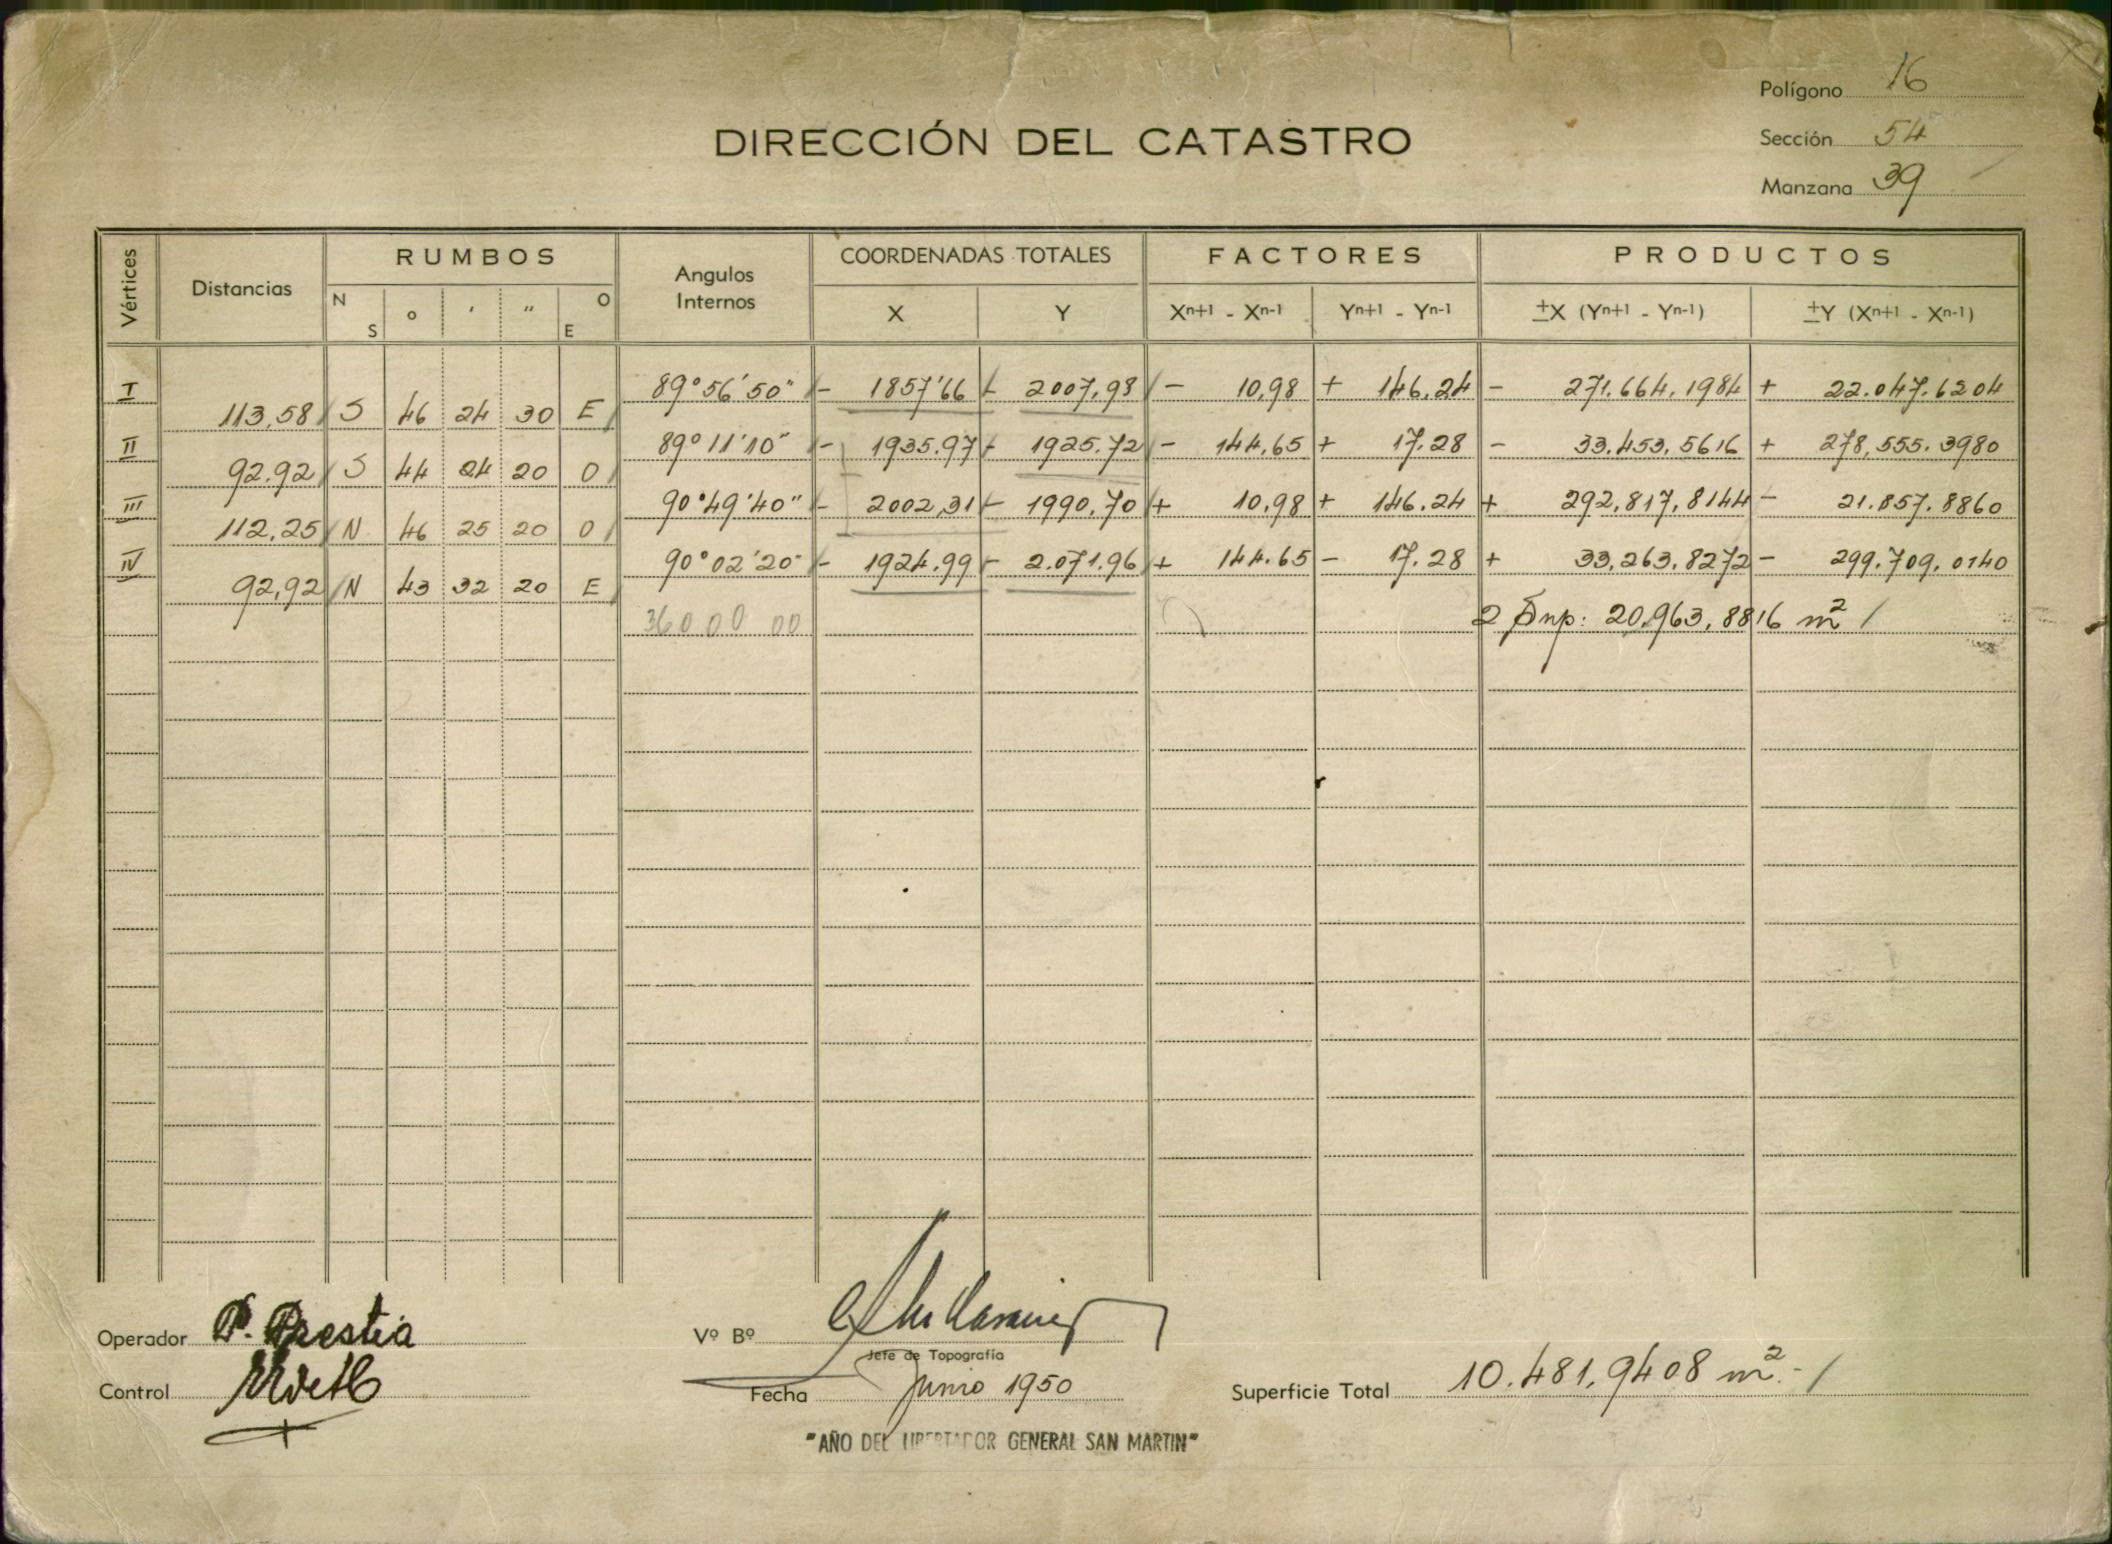 Polígono 16
DIRECCIÓN DEL CATASTRO
Sección 54
Manzana 39
Vértices Distancias RUMBOS Angulos Internos COORDENADAS TOTALES FACTORES PRODUCTOS
N S o ' " O E X Y Xn+1 - Xn-1 Yn+1 - Yn-1 ±X (Yn+1 - Yn-1) ±Y (Xn+1 - Xn-1)
I 89°56'50" - 1857'66 - 2007,98 - 10,98 + 146,24 - 271.664,1984 + 22.047.6204
113,58 S 46 24 30 E
II 89°11'10" - 1935.97 - 1925.72 - 144,65 + 17.28 - 33.453,5616 + 278,555.3980
92.92 S 44 24 20 O
III 90°49'40" - 2002,31 - 1990,70 + 10,98 + 146.24 + 292,817,8144 - 21.857.8860
112,25 N 46 25 20 O
IV 90°02'20" - 1924.99 - 2.071.96 + 144.65 - 17.28 + 33,263.8272 - 299.709,0140
92,92 N 43 32 20 E
360 00 00 2 Sup: 20.963,8816 m²
Operador P. Prestia Vº Bº
Jefe de Topografía
Control Fecha Junio 1950 Superficie Total 10.481,9408 m².-
"AÑO DEL LIBERTADOR GENERAL SAN MARTIN"